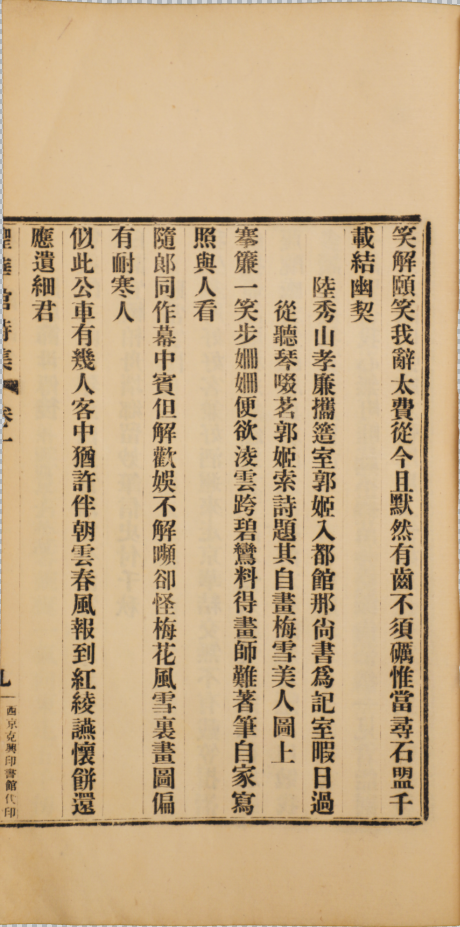 笑解頤笑我辭太費從今且默然有齒不須礪惟當尋石盟千
載結幽契
陸秀山孝廉攜簉室郭姬入都館那尙書爲記室暇日過
從聽琴啜茗郭姬索詩題其自畫梅雪美人圖上
搴簾一笑步姍姍便欲淩雲跨碧鸞料得畫師難著筆自家寫
照與人看
隨郞同作幕中賓但解歡娛不解嚬卻怪梅花風雪裏畫圖偏
有耐寒人
似此公車有幾人客中猶許伴朝雲春風報到紅綾讌懷餠還
應遺細君
館詩集 卷一
九
西京克興印書館代印